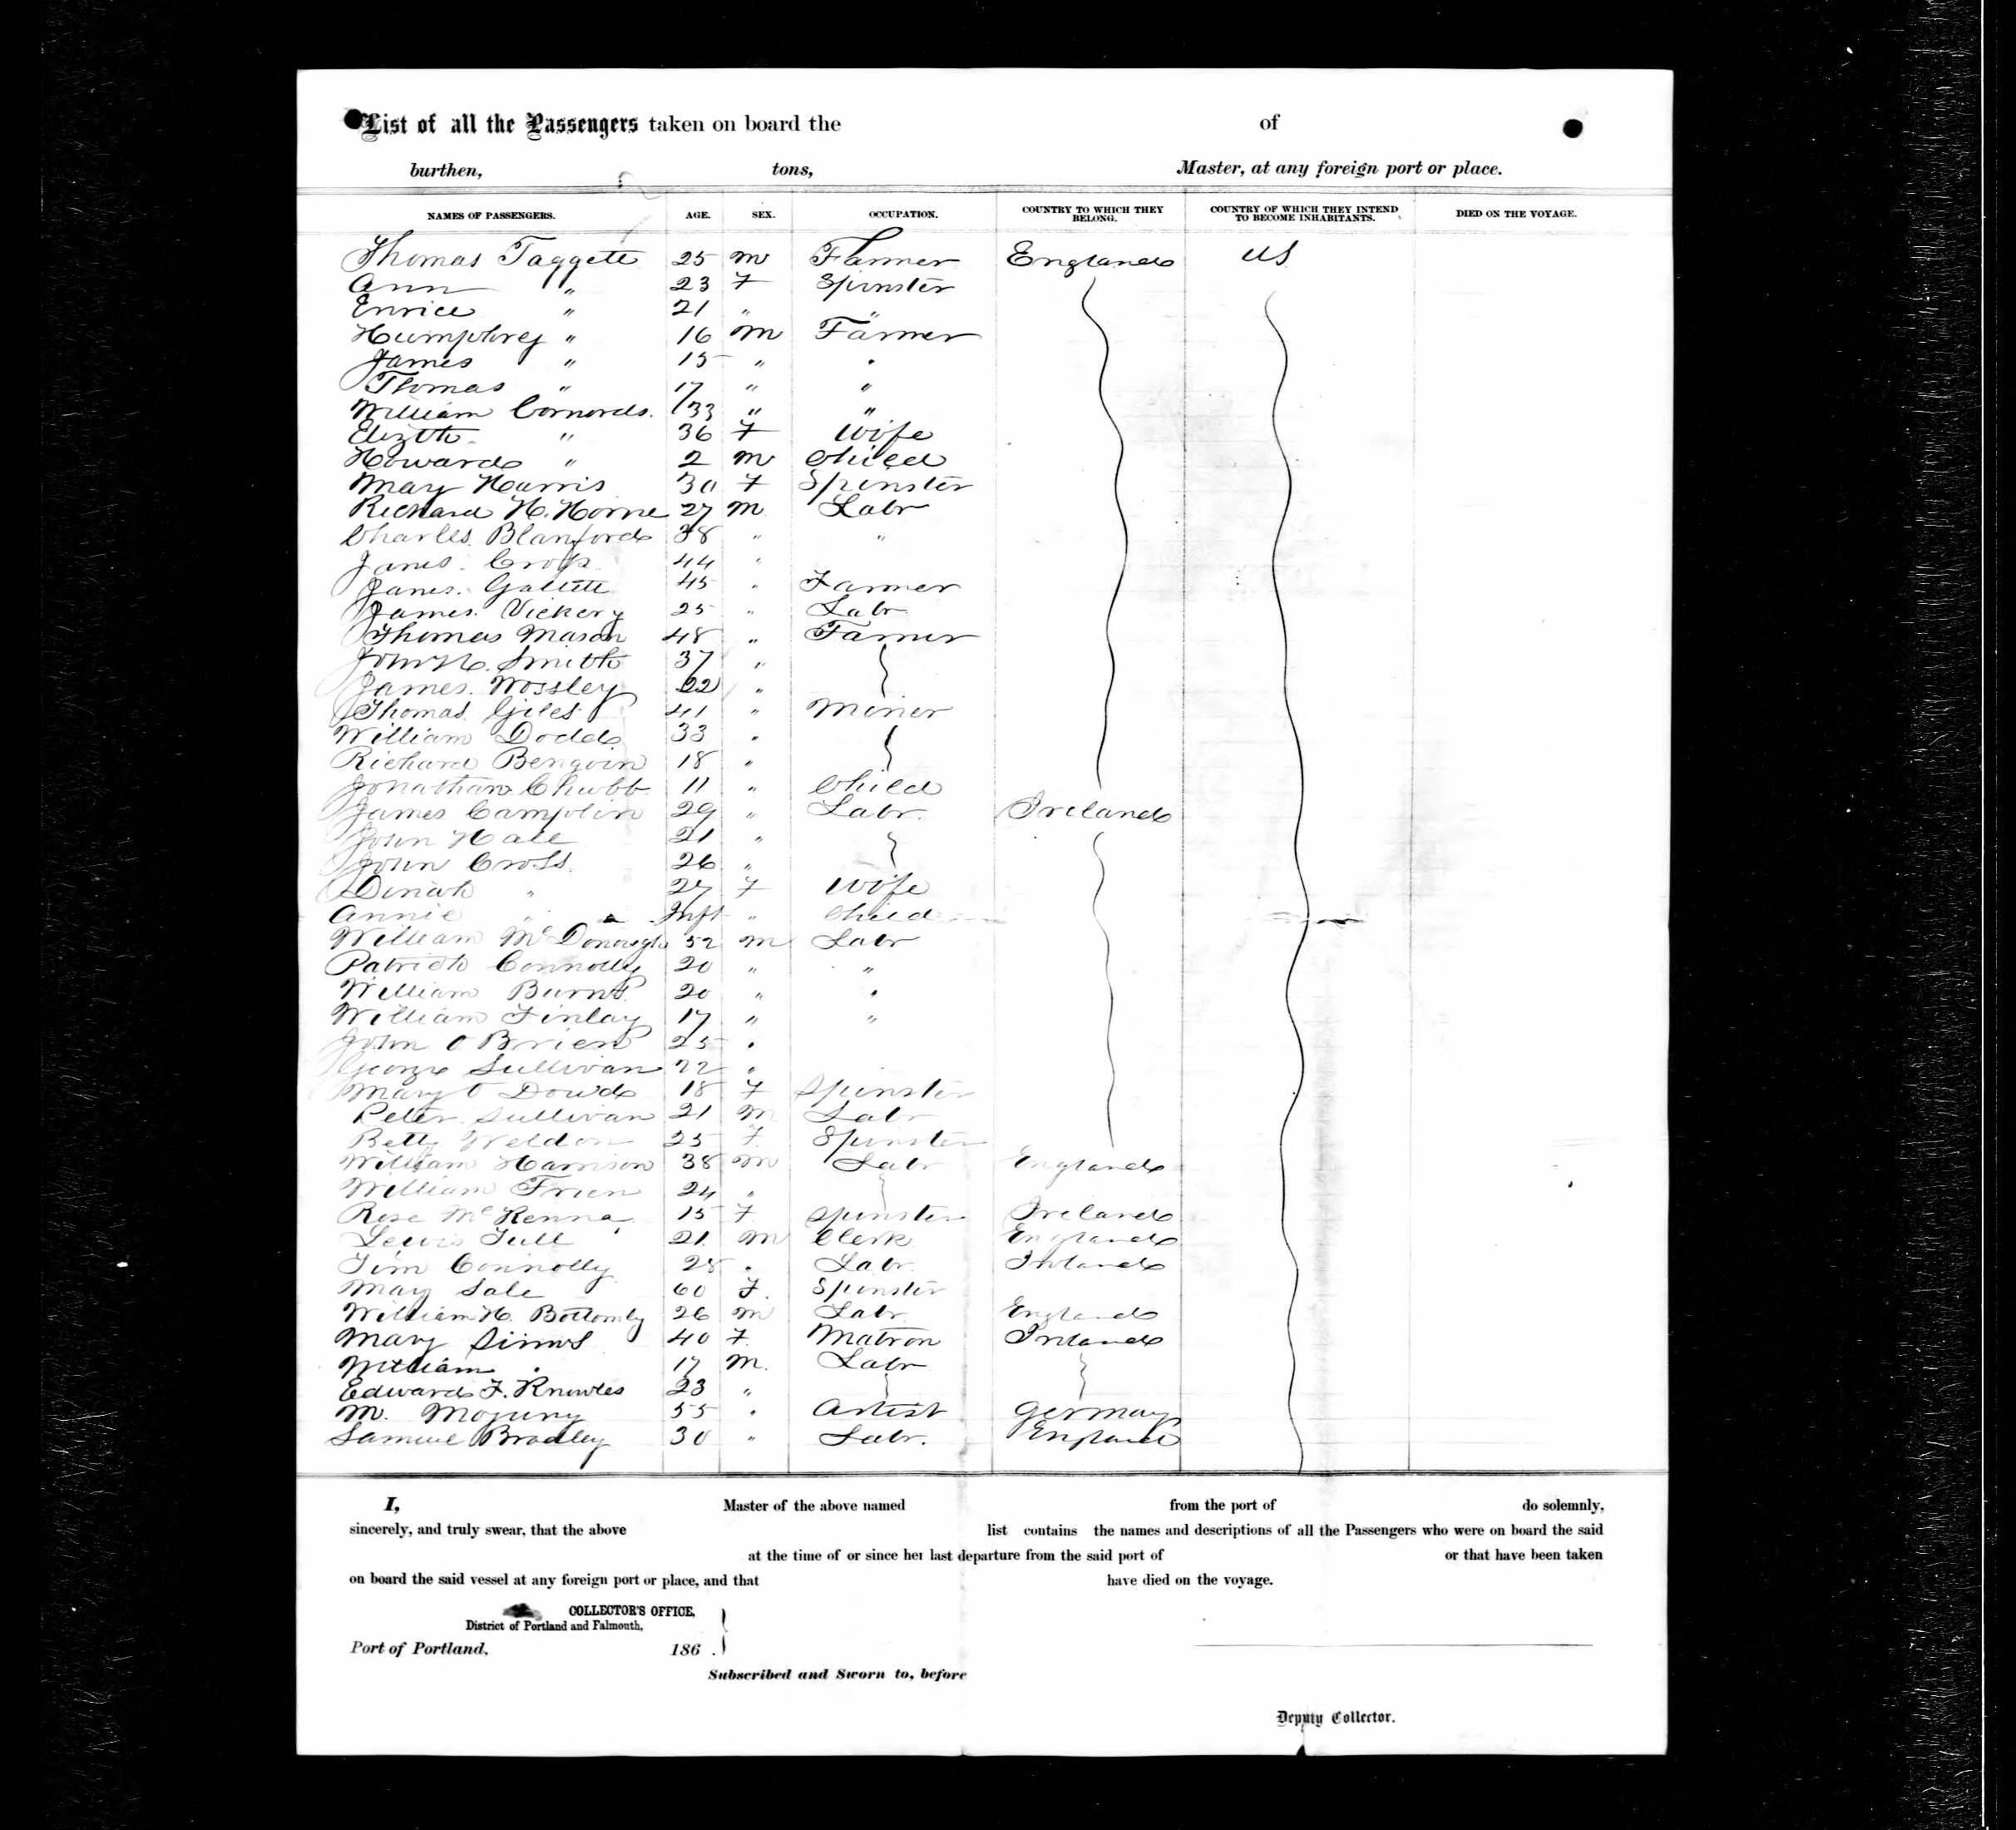 List of all the Passengers taken on board the of
burthen, tons, Master, at any foreign port or place.
NAMES OF PASSENGERS. AGE. SEX. OCCUPATION. COUNTRY TO WHICH THEY BELONG. COUNTRY OF WHICH THEY INTEND TO BECOME INHABITANTS. DIED ON THE VOYAGE.
Thomas Taggett 25 m Farmer England US
Ann " 23 F Spinster
" 21 " "
Humphrey " 16 m Farmer
James " 15 " "
Thomas " 17 " "
William 33 " "
Elizth " 36 F Wife
Howard " 2 m Child
Mary Harris 30 F Spinster
Richard H. Horne 27 m Labr
Charles Blanford 38 " "
James 44 "
James 45 " Farmer
James Vickery 25 " Labr
Thomas Mason 48 " Farmer
John H. Smith 37 "
James Wossley 22 "
Thomas Giles 41 " Minor
William Dodd 33 "
Richard 18 "
Jonathan Chubb 11 " Child
James Camplin 29 " Labr. Ireland
John Hall 21 "
John Cross 26 "
Dinah " 27 F Wife
Annie " Inft " Child
William McDonough 52 m Labr
Patrick Connolly 20 " "
William Burns 20 " "
William Finlay 17 " "
John O Brien 25 "
George Sullivan 22 "
Mary O Dowd 18 F Spinster
Peter Sullivan 21 m Labr
Betty Weldon 25 F Spinster
William Harrison 38 m Labr England
William 24 "
Rose McKenna 15 F Spinster Ireland
Lewis 21 m Clerk England
Tim Connolly 28 " Labr Ireland
May Sale 60 F. Spinster
William H. Bottomly 26 m Labr England
Mary Simms 40 F Matron Ireland
William " 17 m. Labr
Edward F. Knowles 23 "
M. 55 " Artist Germany
Samuel Bradley 30 " Labr. England
I, Master of the above named from the port of do solemnly,
sincerely, and truly swear, that the above list contains the names and descriptions of all the Passengers who were on board the said
at the time of or since her last departure from the said port of or that have been taken
on board the said vessel at any foreign port or place, and that have died on the voyage.
COLLECTOR'S OFFICE,
District of Portland and Falmouth,
Port of Portland, 186 .
Subscribed and Sworn to, before
Deputy Collector.